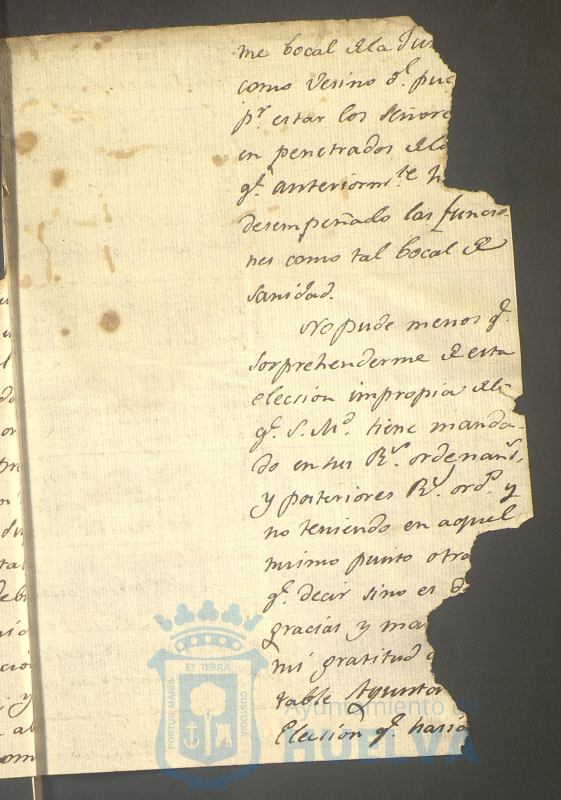 me bocal de la Jun
como Vesino q.e pue
p.r estar los Señore
en penetrados de lo
q.e anteriorm.te h
desempeñado las funcio
nes como tal bocal de
sanidad.
No pude menos q.e
sorprehenderme de esta
elecsion impropia de lo
q.e S. M.d tiene manda-
do en sus R.s ordenan.s,
y posteriores R.s ord.s y
no teniendo en aquel
mismo punto otra
q.e decir sino es d
gracias y ma
mi gratitud a
table Ayunta
Elecsion q.e hasia
ET TERRA
PORTUS MARIS
CUSTODIA
Ayuntamiento de
HUELVA